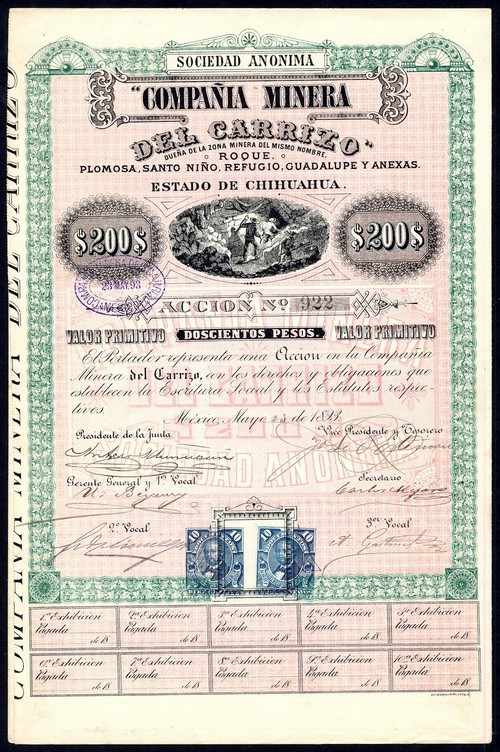 SOCIEDAD ANONIMA
"COMPAÑIA MINERA
DEL CARRIZO"
DUEÑA DE LA ZONA MINERA DEL MISMO NOMBRE.
ROQUE.
PLOMOSA, SANTO NIÑO, REFUGIO, GUADALUPE Y ANEXAS.
ESTADO DE CHIHUAHUA.
$200$ $200$
23 MAY. 93
ACCION No. 922
VALOR PRIMITIVO DOSCIENTOS PESOS. VALOR PRIMITIVO
El Portador representa una Accion en la Compañia
Minera del Carrizo, con los derechos y obligaciones que
establecen la Escritura Social y los Estatutos respec-
tivos.
México, Mayo 23 de 1893
Presidente de la Junta Vice Presidente y Tesorero
Gerente General y 1er Vocal Secretario
2o. Vocal 3er Vocal
10 10 10 10
1a Exhibicion 2a Exhibicion 3a Exhibicion 4a Exhibicion 5a Exhibicion
Pagada Pagada Pagada Pagada Pagada
de 18 de 18 de 18 de 18 de 18
6a Exhibicion 7a Exhibicion 8a Exhibicion 9a Exhibicion 10a Exhibicion
Pagada Pagada Pagada Pagada Pagada
de 18 de 18 de 18 de 18 de 18
COMPAÑIA MINERA DEL CARRIZO